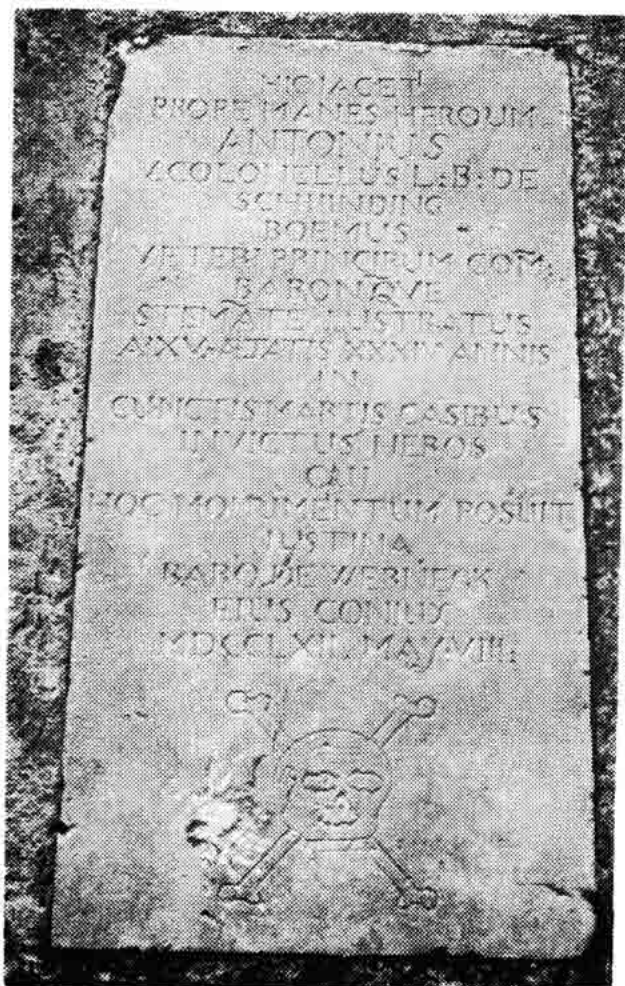 HIC IACET
PROPE MANES HEROUM
ANTONIUS
A COLONELLUS L:B: DE
SCHIRNDING
BOEMUS
PRINCIPUM COM:
BARONQVE
STEMATE ILLUSTRATUS
ÆTATIS ANNIS
IN
CUNCTIS MARTIS CASIBUS
INVICTUS HEROS
CUI
HOC MONUMENTUM POSUIT
IUSTINA
BARO DE WERNECK
EIUS CONIUX
MAY VIII: